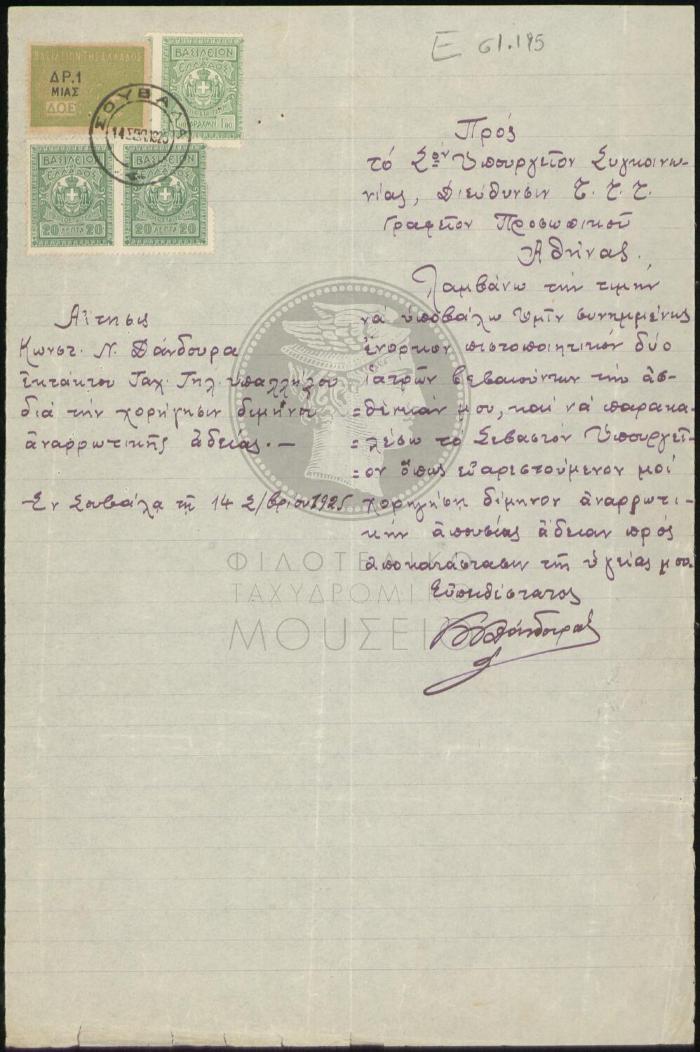 Ε 61.195
ΒΑΣΙΛΕΙΟΝ ΤΗΣ ΕΛΛΑΔΟΣ
ΔΡ.1
ΜΙΑΣ
ΒΑΣΙΛΕΙΟΝ
ΕΛΛΑΔΟΣ
ΣΟΥΒΑΛΑ
ΒΑΣΙΛΕΙΟΝ
ΕΛΛΑΔΟΣ
20 ΛΕΠΤΑ 20
ΒΑΣΙΛΕΙΟΝ
ΕΛΛΑΔΟΣ
20 ΛΕΠΤΑ 20
Πρός
τό Σον Ὑπουργεῖον Συγκοινω-
νίας, Διεύθυνσιν Τ. Τ. Τ.
Γραφεῖον Προσωπικοῦ
Ἀθήνας.
Αἴτησις
Κωνστ. Ν. Δάνδουρα
ἐκτάκτου Ταχ. Τηλ. ὑπαλλήλου
διά τήν χορήγησιν διμήνου
ἀναρρωτικῆς ἀδείας. —
Ἐν Σουβάλα τῇ 14 Σ/βρίου 1925
Λαμβάνω τήν τιμήν
νά ὑποβάλω Ὑμῖν συνημμένως
ἔνορκον πιστοποιητικόν δύο
ἰατρῶν βεβαιούντων τήν ἀσ-
=θένειάν μου, καί νά παρακα-
=λέσω τό Σεβαστόν Ὑπουργεῖ-
=ον ὅπως εὐαρεστούμενον μοί
χορηγήσῃ δίμηνον ἀναρρωτι-
κήν ἀπουσίας ἄδειαν πρός
ἀποκατάστασιν τῆς ὑγείας μου.
Εὐπειθέστατος
ΦΙΛΟΤΕΛΙΚΟ
ΤΑΧΥΔΡΟΜΙΚΟ
ΜΟΥΣΕΙΟ